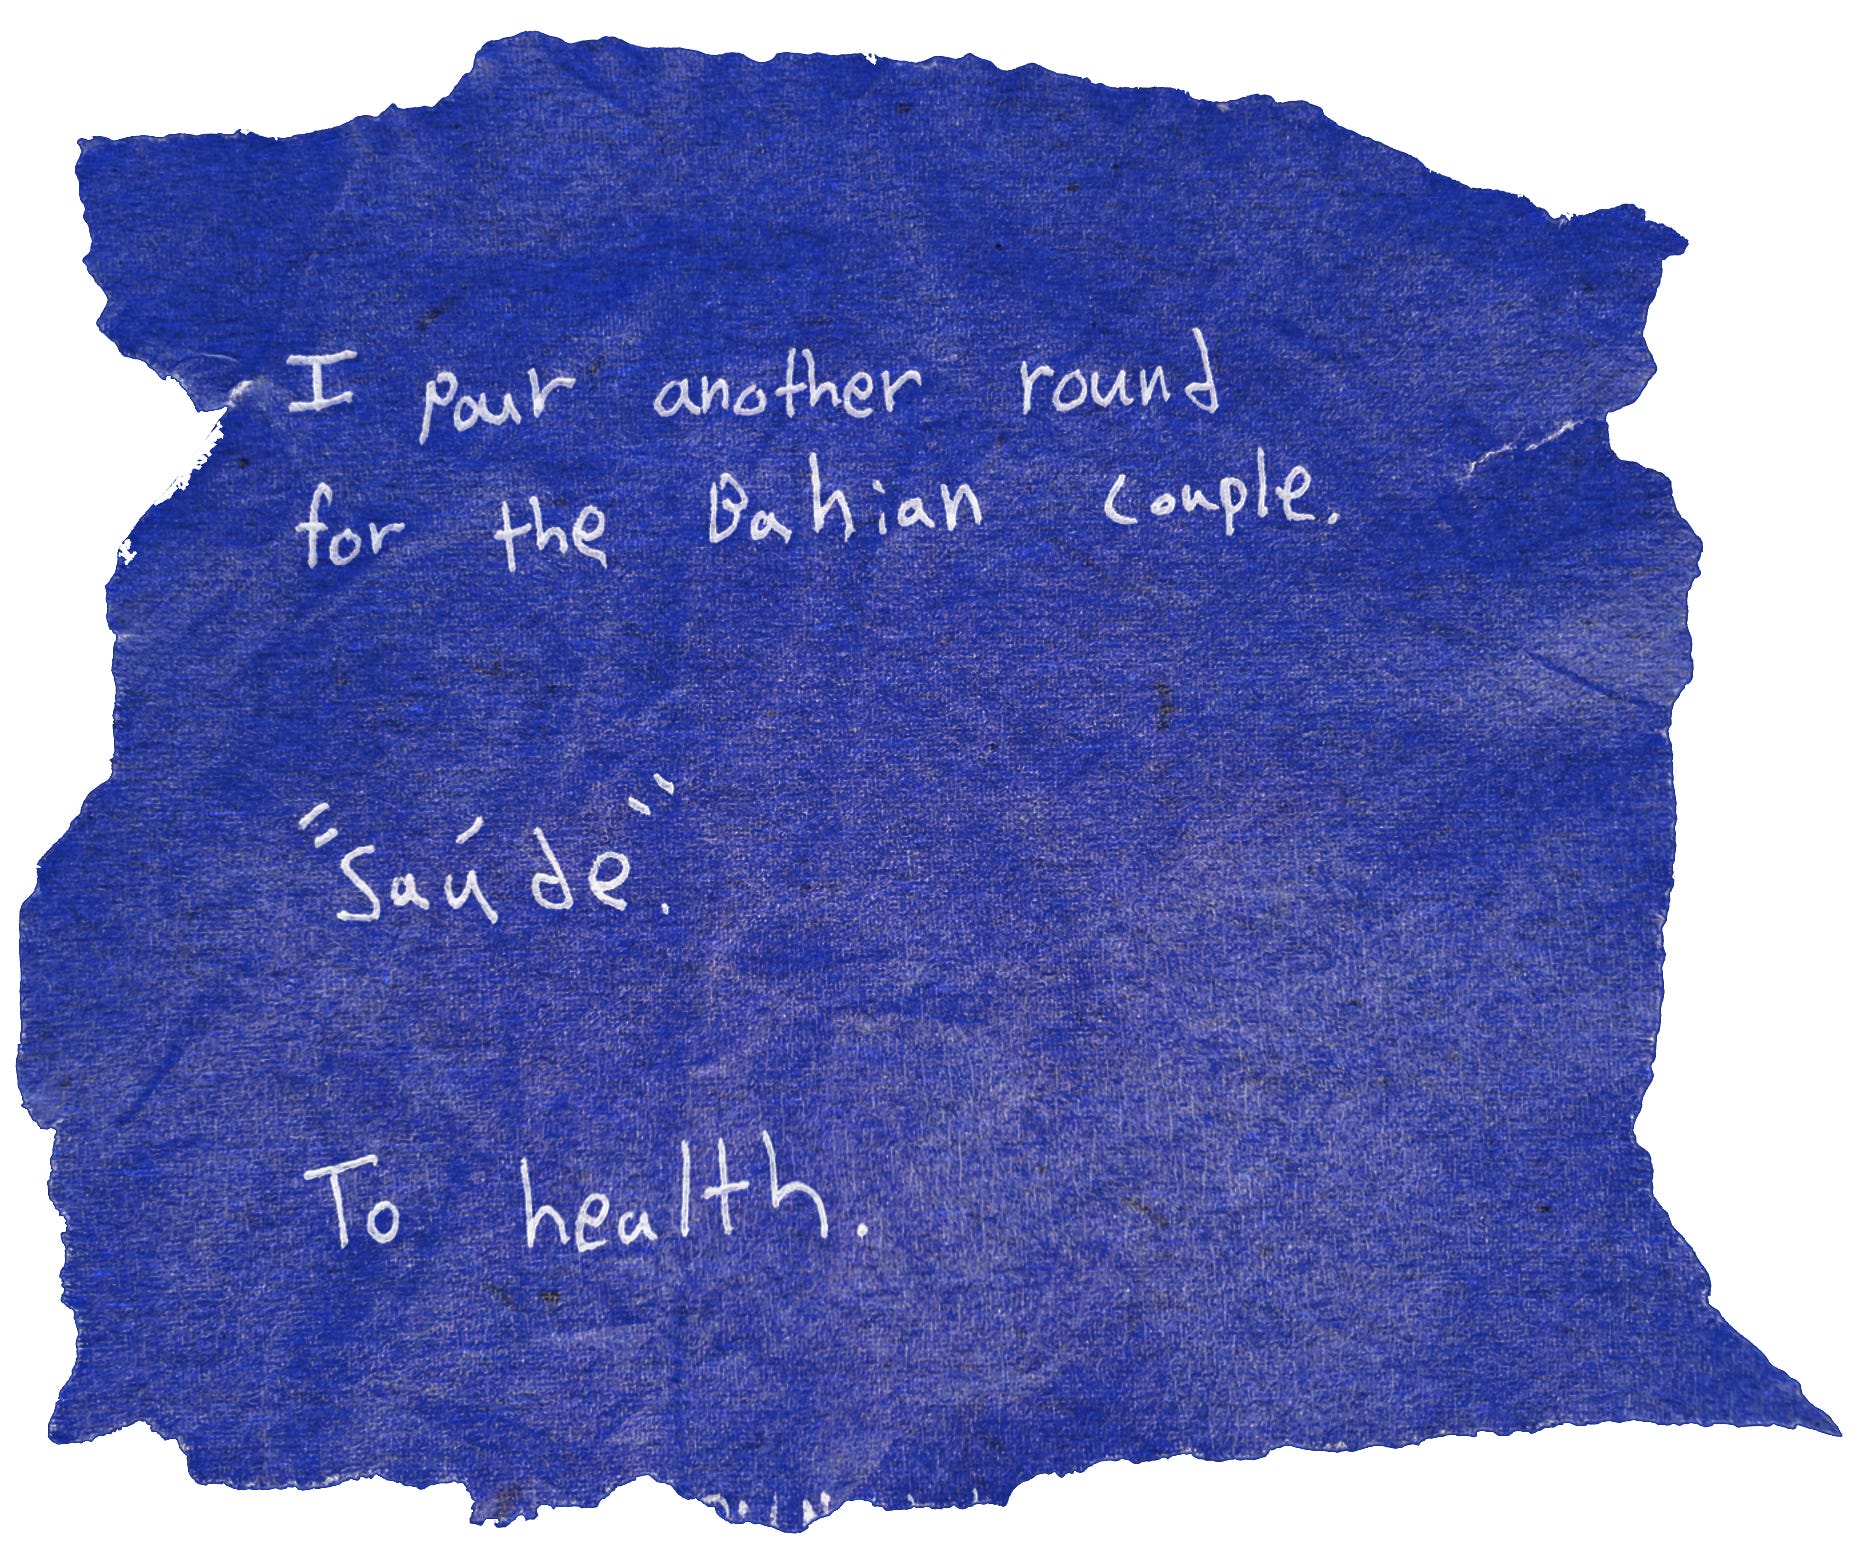 I pour another round
for the Bahian couple.
"Saúde."
To health.